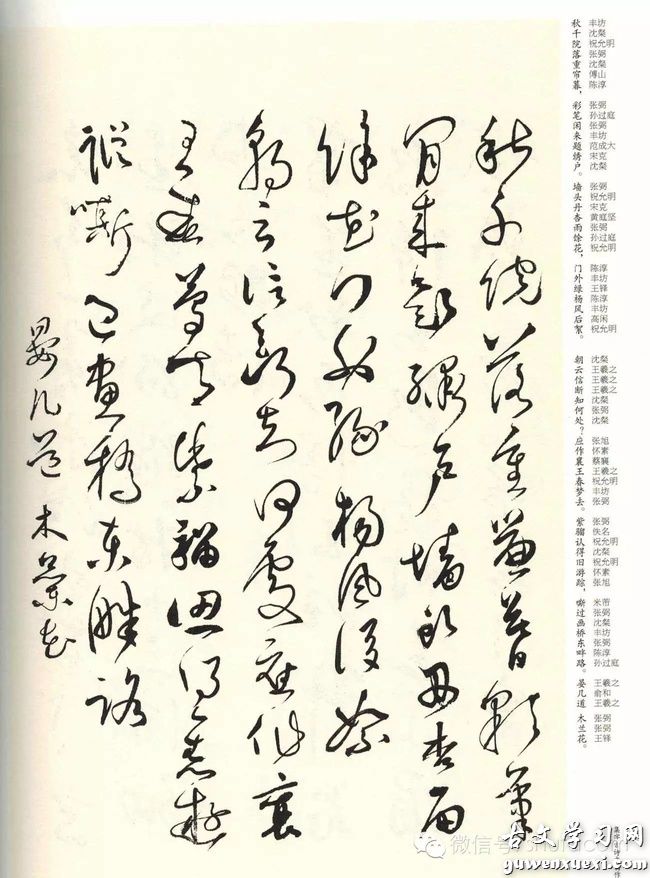 秋 丰坊
千 沈粲
院 祝允明
落 张弼
重 沈粲
帘 傅山
暮， 陈淳
彩 张弼
笔 孙过庭
闲 张弼
来 丰坊
题 范成大
绣 宋克
户。 沈粲
墙 张弼
头 祝允明
丹 宋克
杏 黄庭坚
雨 张弼
馀 孙过庭
花， 祝允明
门 陈淳
外 丰坊
绿 王铎
杨 陈淳
风 丰坊
后 高闲
絮。 祝允明
朝 沈粲
云 王羲之
信 王羲之
断 王羲之
知 沈粲
何 张弼
处？ 沈粲
应 张旭
作 怀素
襄 蔡襄
王 王羲之
春 祝允明
梦 丰坊
去。 张弼
紫 张弼
骝 佚名
认 祝允明
得 沈粲
旧 祝允明
游 怀素
踪， 张旭
嘶 米芾
过 张弼
画 沈粲
桥 丰坊
东 张弼
畔 陈淳
路。 孙过庭
晏 王羲之
几 俞和
道 王羲之
木 张弼
兰 张弼
花。 王铎
秋千院落重簾暮彩筆
閒來題繡戶墻頭丹杏雨
餘花門外綠楊風後絮
朝雲信斷知何處應作襄
王春夢去紫騮認得舊遊
蹤嘶過畫橋東畔路
晏几道 木蘭花
微信号
古文学习网
guwenxuexi.com